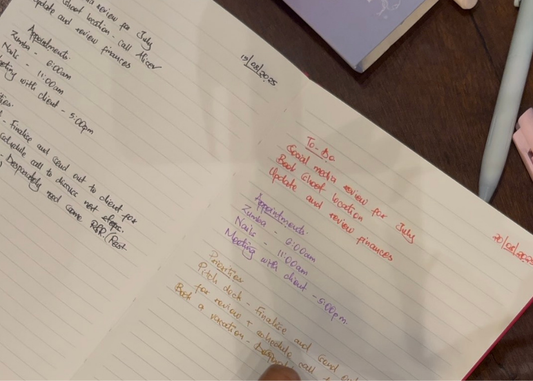 review for July
Shoot location. Call Alicer
update and review finances
Appointments
Zumba - 8:00am
Nails - 11:00am
Meeting with client - 5:00pm
- Finalize and Send out to client for
schedule call to discuss next steps.
Desperately need some R&R (Rest
19/08/2025
20/08/2025
To-Do
Social media review for July
Book Shoot location
Update and review finances
Appointments
Zumba - 8:00am
Nails - 11:00am
Meeting with client - 5:00pm.
Priorities
Pitch deck - Finalize and Send out
for review + schedule call
Book a vacation -